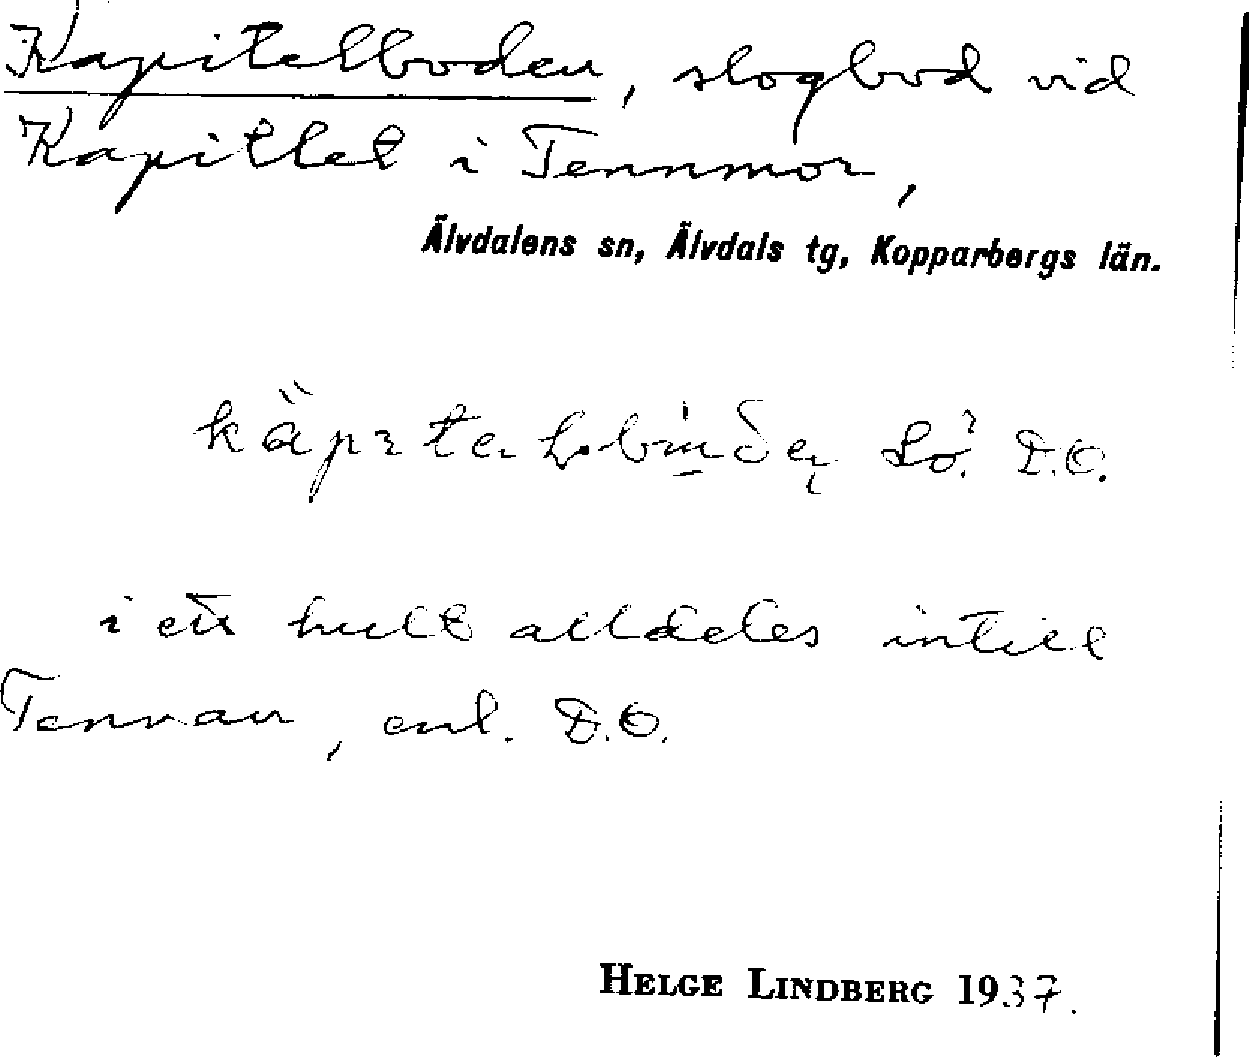 Kapitelboden, slogbod vid
Kapitlet i Tennmor,
Älvdalens sn, Älvdals tg, Kopparbergs län.
D.O.
i ett hult alldeles intill
Tennan, enl. D.O.
HELGE LINDBERG 1937.